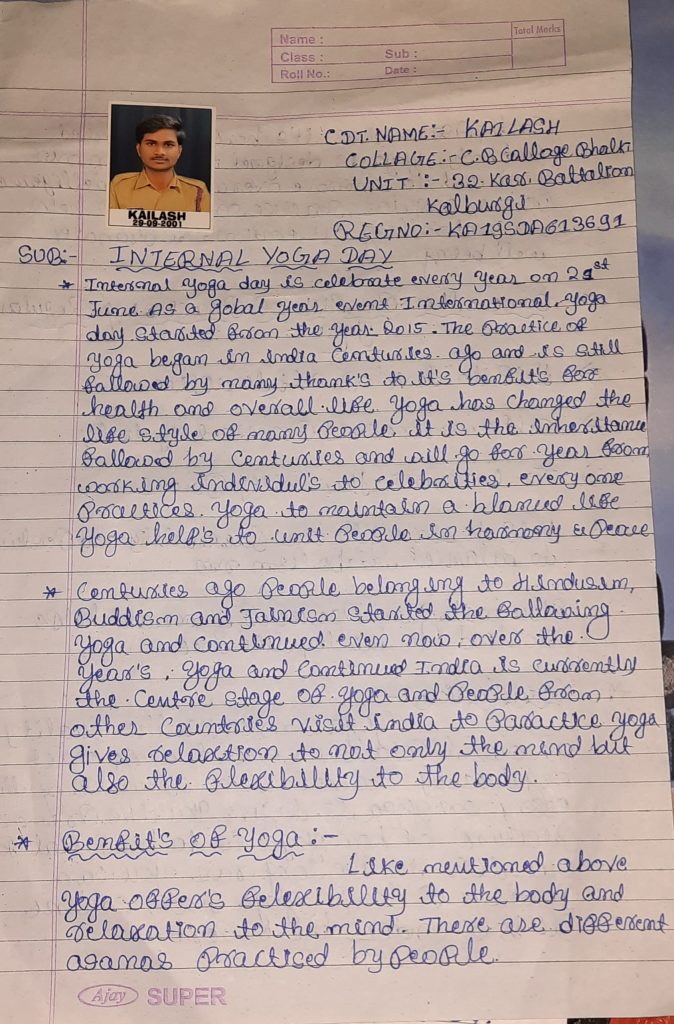 Name :
Total Marks
Class :
Sub :
Roll No.:
Date :
KAILASH
29-09-2001
CDT. NAME:- KAILASH
COLLAGE:- C.B Callage Bhalki
UNIT :- 32. Kar. Battalion
Kalburgi
REGNO:- KA19SDA613691
SUB:- INTERNAL YOGA DAY
* Internal yoga day is celebrate every year on 21st
June. As a gobal year event International. Yoga
day started from the year. 2015. The Practice of
Yoga began in india Centuries. ago and is still
fallowed by many thank's to it's benfit's for
health and overall life Yoga has changed the
life style of many People. it is the inheritance
fallowed by Centuries and will go for year from
working individul's to celebrities. every one
Practices. Yoga to maintain a blanced life
Yoga help's to unit People in harmony & Peace
* Centuries ago People belonging to Hindusim,
Buddism and Jainism started the fallowing
Yoga and continued even now, over the
Year's, Yoga and continued India is currently
the Centre stage of Yoga and People from
other Countries visit india to Paractice yoga
gives relaxtion to not only the mind but
also the flexibility to the body.
* Benfit's of Yoga :-
Like mentioned above
Yoga offer's felexibility to the body and
relaxation to the mind. There are different
asanas Practised by People.
Ajay SUPER